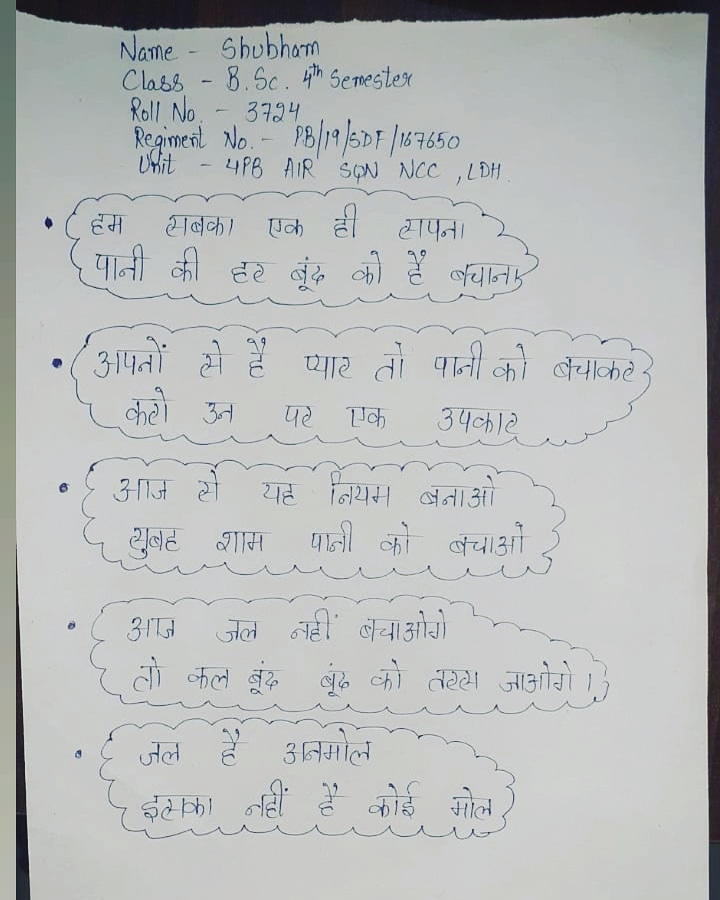 Name - Shubham
Class - B.Sc. 4th Semester
Roll No. - 3724
Regiment No. - PB/19/SDF/167650
Unit - 4PB AIR SQN NCC, LDH.
हम सबका एक ही सपना
पानी की हर बूंद को है बचाना
अपनों से है प्यार तो पानी को बचाकर
करो उन पर एक उपकार
आज से यह नियम बनाओ
सुबह शाम पानी को बचाओ
आज जल नहीं बचाओगे
तो कल बूंद बूंद को तरस जाओगे।
जल है अनमोल
इसका नहीं है कोई मोल